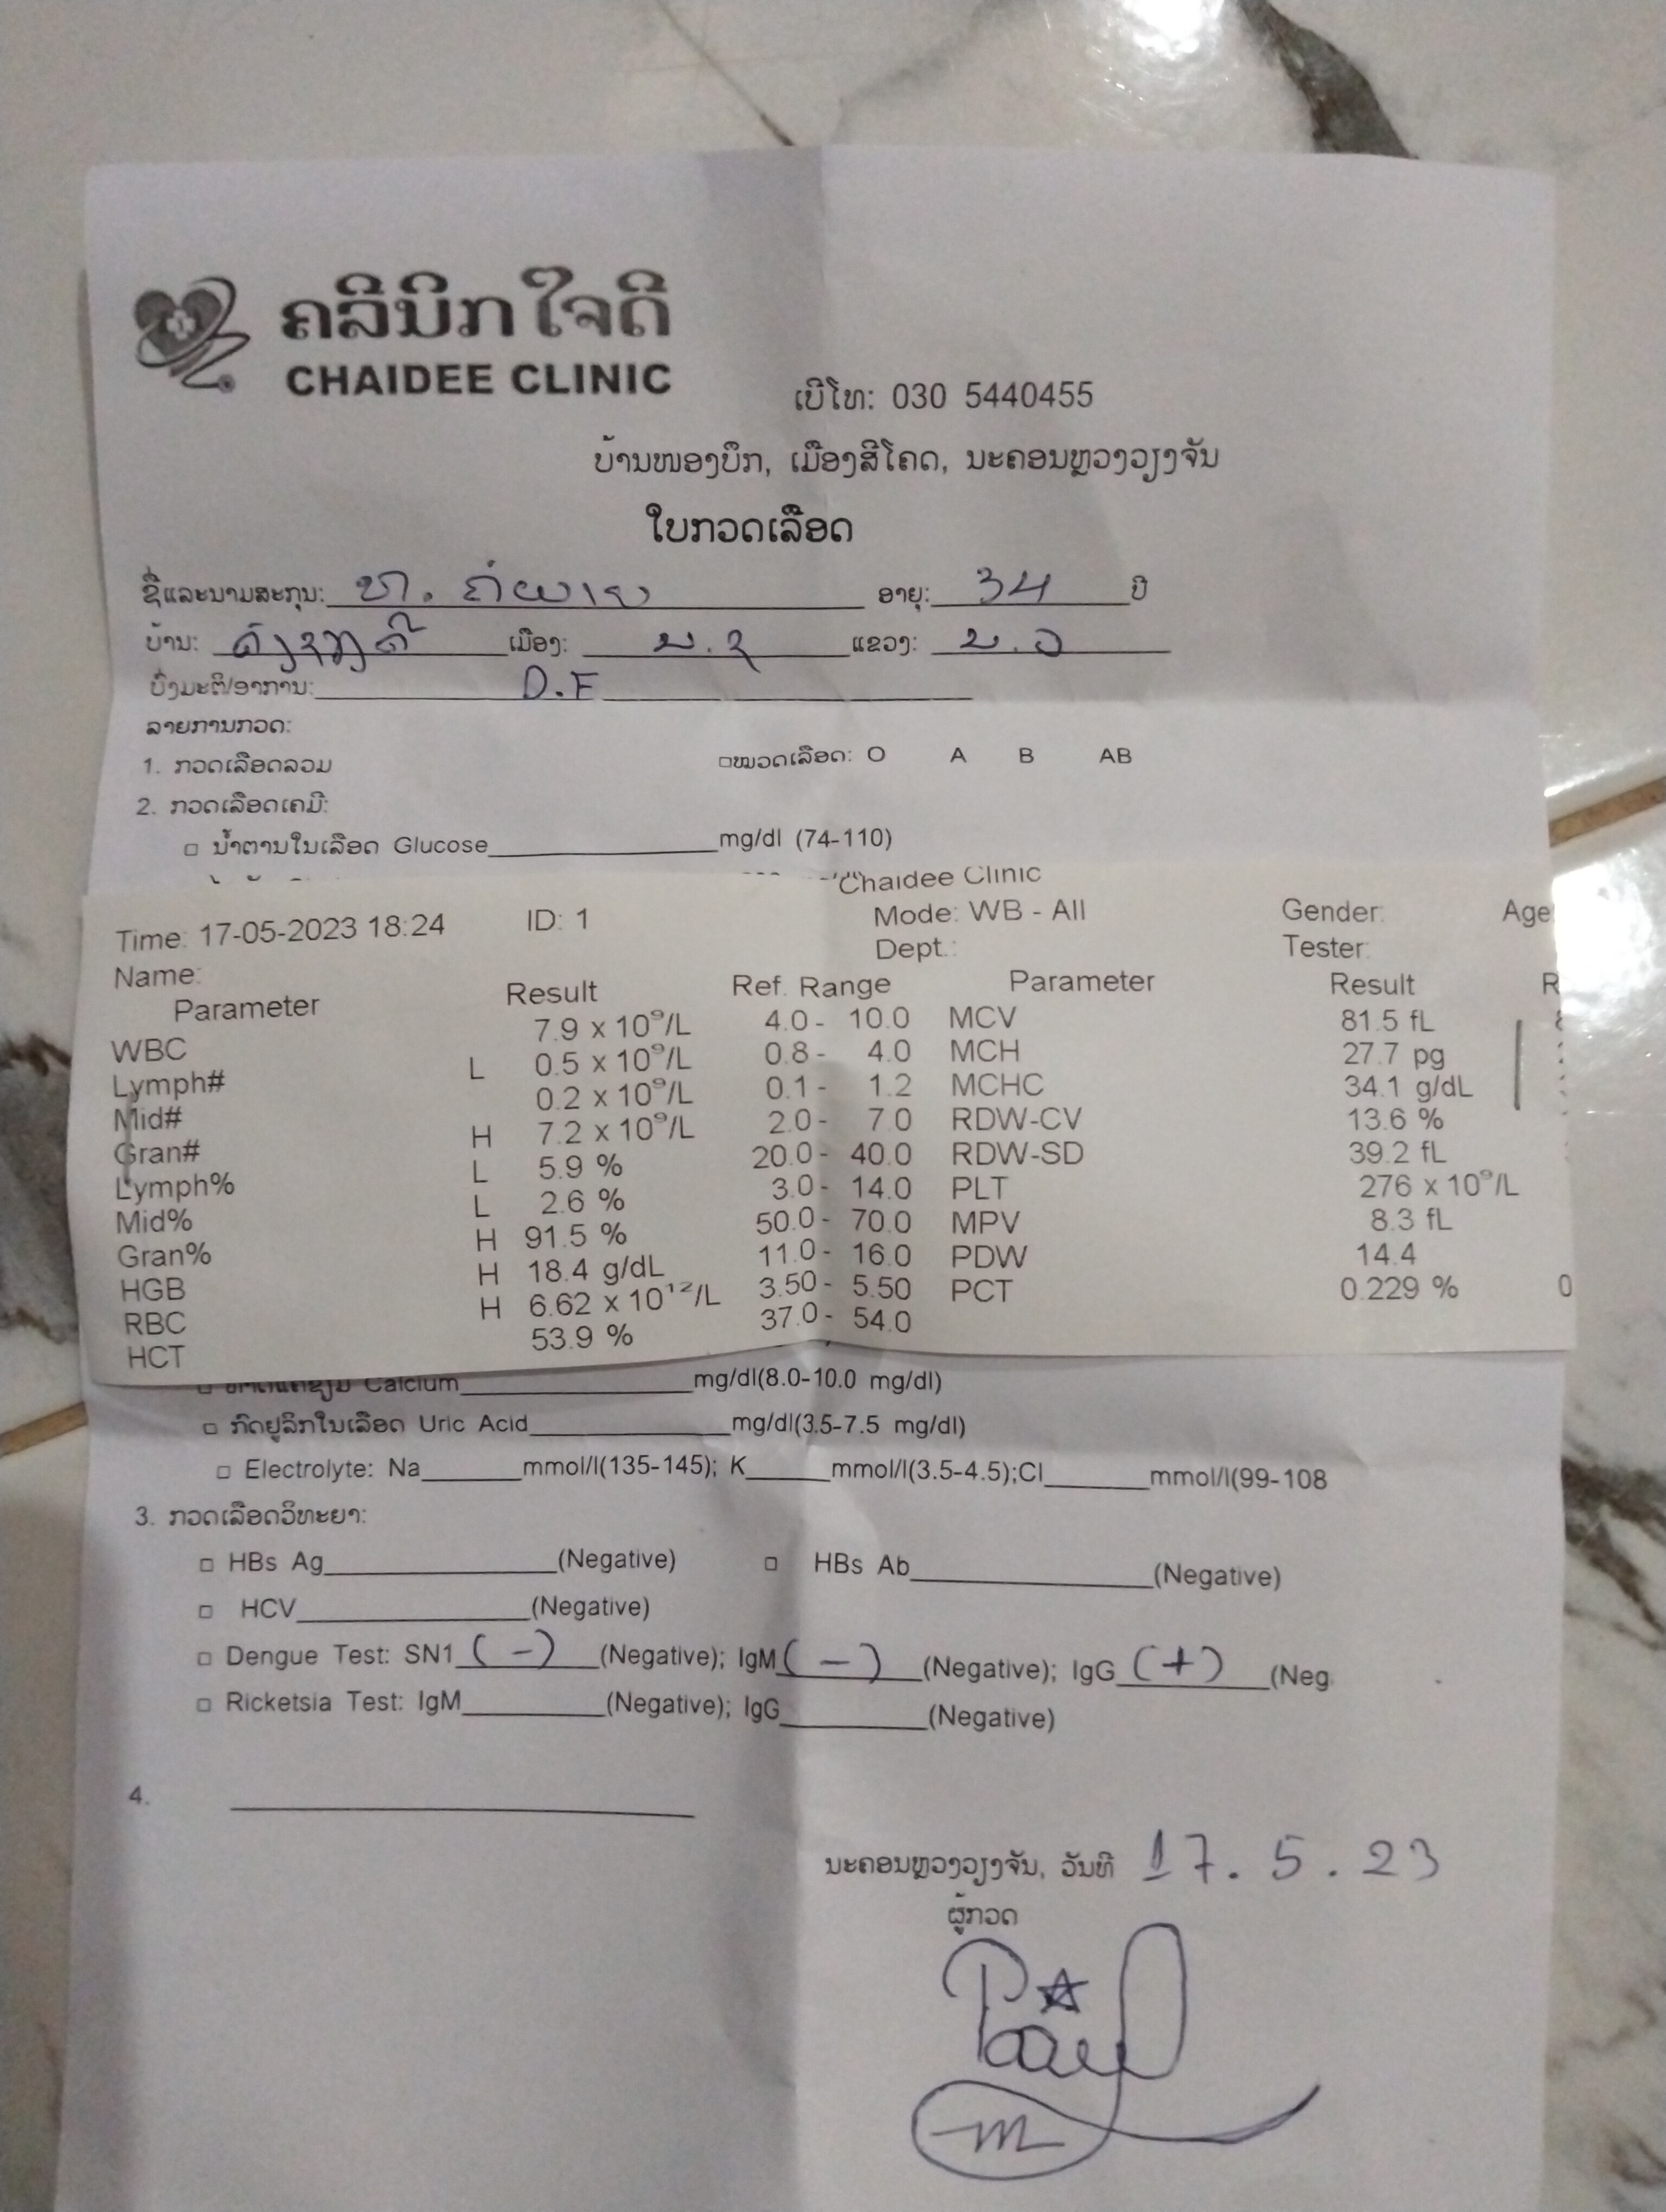 ຄລີນິກ ໃຈດີ
CHAIDEE CLINIC
ເບີໂທ: 030 5440455
ບ້ານໜອງບຶກ, ເມືອງສີໂຄດ, ນະຄອນຫຼວງວຽງຈັນ
ໃບກວດເລືອດ
ຊື່ແລະນາມສະກຸນ: ອາຍຸ: 34 ປີ
ບ້ານ: ເມືອງ: ແຂວງ:
ບົ່ງມະຕິ/ອາການ: D.F
ລາຍການກວດ:
1. ກວດເລືອດລວມ □ໝວດເລືອດ: O A B AB
2. ກວດເລືອດເຄມີ:
□ ນ້ຳຕານໃນເລືອດ Glucose mg/dl (74-110)
Chaidee Clinic
Time: 17-05-2023 18:24 ID: 1 Mode: WB - All Gender: Age
Name: Dept.: Tester:
Parameter Result Ref. Range Parameter Result R
WBC 7.9 x 10⁹/L 4.0 - 10.0 MCV 81.5 fL
Lymph# L 0.5 x 10⁹/L 0.8 - 4.0 MCH 27.7 pg
Mid# 0.2 x 10⁹/L 0.1 - 1.2 MCHC 34.1 g/dL
Gran# H 7.2 x 10⁹/L 2.0 - 7.0 RDW-CV 13.6 %
Lymph% L 5.9 % 20.0 - 40.0 RDW-SD 39.2 fL
Mid% L 2.6 % 3.0 - 14.0 PLT 276 x 10⁹/L
Gran% H 91.5 % 50.0 - 70.0 MPV 8.3 fL
HGB H 18.4 g/dL 11.0 - 16.0 PDW 14.4
RBC H 6.62 x 10¹²/L 3.50 - 5.50 PCT 0.229 % 0
HCT 53.9 % 37.0 - 54.0
Calcium mg/dl(8.0-10.0 mg/dl)
□ ກົດຢູລິກໃນເລືອດ Uric Acid mg/dl(3.5-7.5 mg/dl)
□ Electrolyte: Na mmol/l(135-145); K mmol/l(3.5-4.5);Cl mmol/l(99-108
3. ກວດເລືອດວິທະຍາ:
□ HBs Ag (Negative) □ HBs Ab (Negative)
□ HCV (Negative)
□ Dengue Test: SN1 (-) (Negative); IgM (-) (Negative); IgG (+) (Neg
□ Ricketsia Test: IgM (Negative); IgG (Negative)
4.
ນະຄອນຫຼວງວຽງຈັນ, ວັນທີ 17.5.23
ຜູ້ກວດ